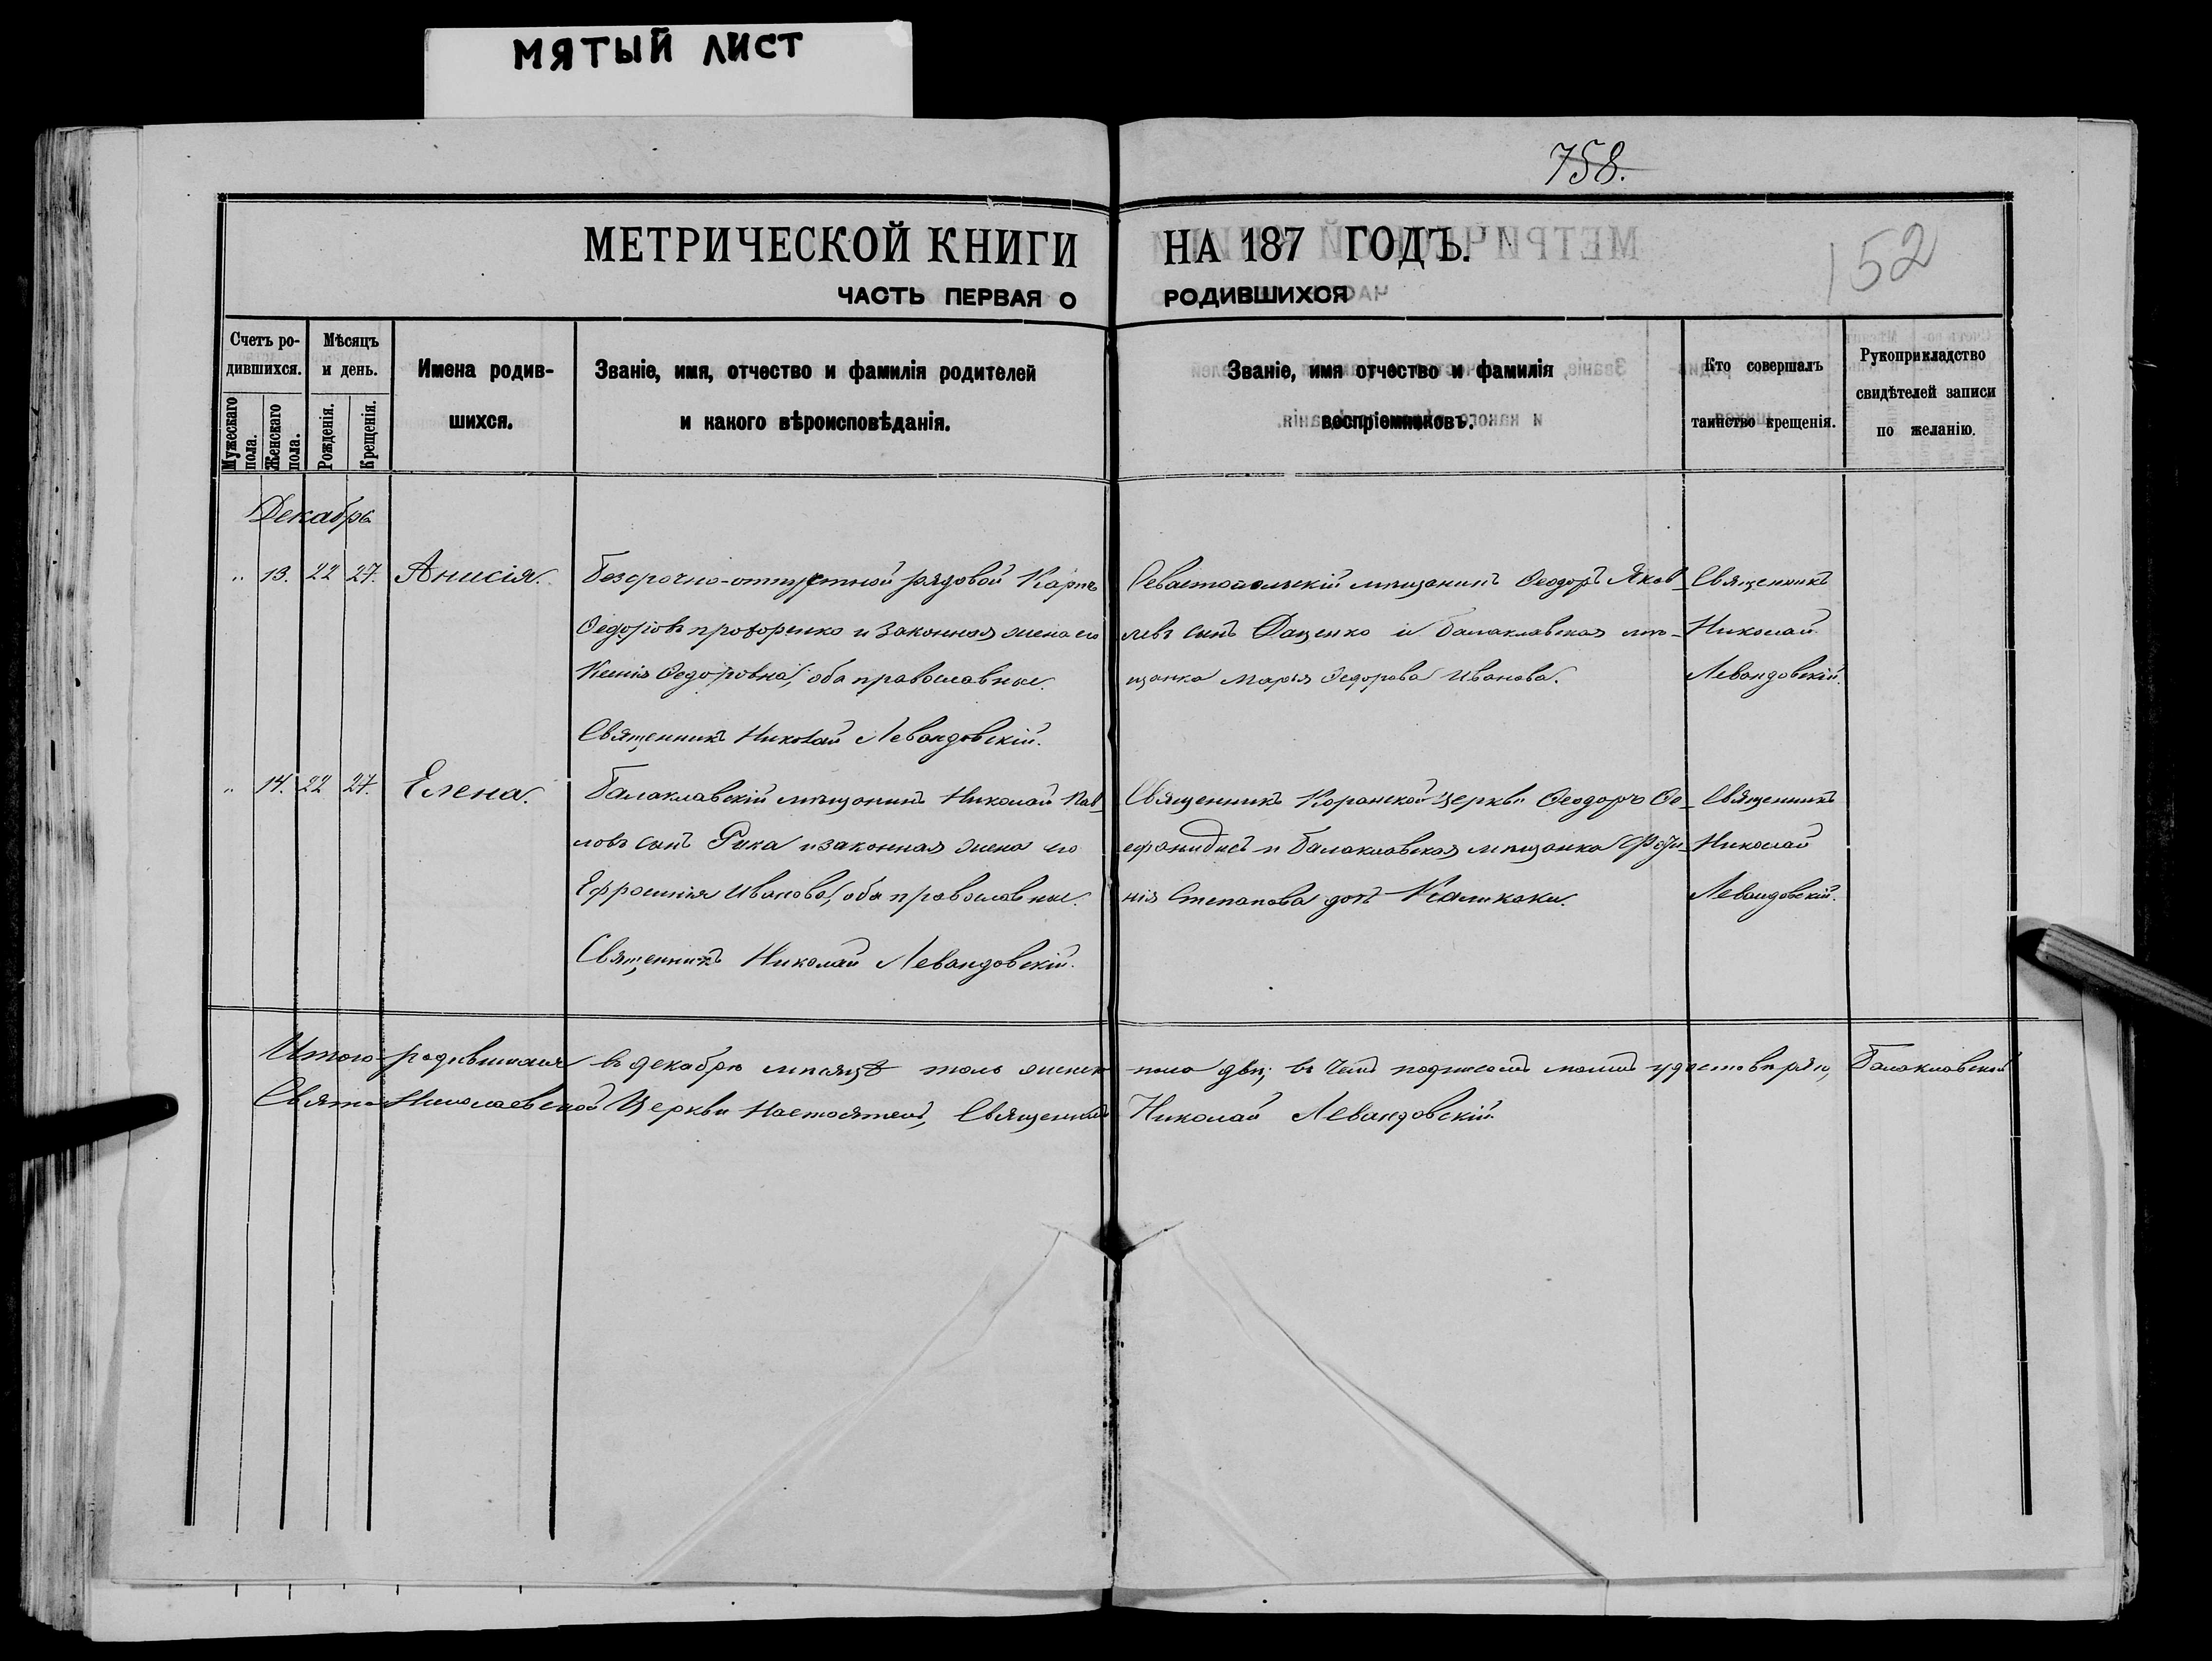 МЯТЫЙ ЛИСТ
758.
152
МЕТРИЧЕСКОЙ КНИГИ НА 187 ГОДЪ.
ЧАСТЬ ПЕРВАЯ О РОДИВШИХСЯ
Счетъ ро-
дившихся.
Мужескаго пола.
Женскаго пола.
Мѣсяцъ
и день.
Рожденія.
Крещенія.
Имена родив-
шихся.
Званіе, имя, отчество и фамилія родителей
и какого вѣроисповѣданія.
Званіе, имя отчество и фамилія
воспріемниковъ.
Кто совершалъ
таинство крещенія.
Рукоприкладство
свидѣтелей записи
по желанію.
Декабрь
" 13. 22 27. Анисія.
Безсрочно-отпускной рядовой Карпъ
Ѳедоровъ и законная жена его
Ксенія Ѳедоровна, оба православные.
Священникъ Николай Левандовскій.
Севастопольскій мѣщанинъ Ѳеодоръ Яков-
левъ сынъ Даценко и балаклавская мѣ-
щанка Марья Ѳедорова Иванова.
Священникъ
Николай
Левандовскій.
" 14. 22 27. Елена.
Балаклавскій мѣщанинъ Николай Пав-
ловъ сынъ и законная жена его
Ефросинія Иванова, оба православные.
Священникъ Николай Левандовскій.
Священникъ Коранской церкви Ѳеодоръ Ѳе-
офанидисъ и Балаклавская мѣщанка Фоти-
нія Степанова дочь
Священникъ
Николай
Левандовскій.
Итого родившихся въ декабрѣ мѣсяцѣ толь женска пола двѣ; въ чемъ подписомъ моимъ удостовѣряю, Балаклавской
Свято-Николаевской Церкви Настоятель, Священникъ Николай Левандовскій.